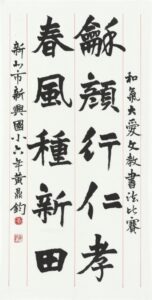 和氣大愛文教書法比賽
龢顏行仁孝
春風種新田
新山市新興國小六年黃鼎鈞